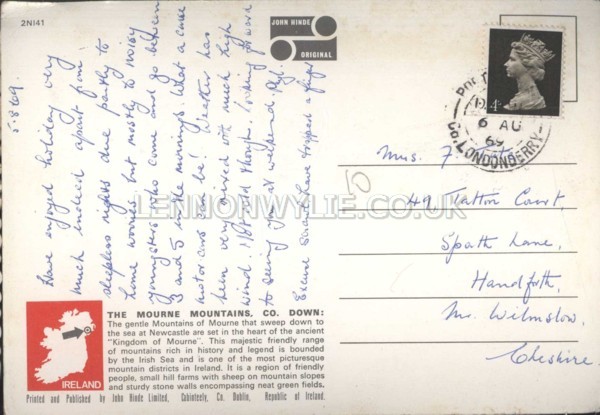 2N141
JOHN HINDE
ORIGINAL
5.8.69.
Have enjoyed holiday very
much indeed apart from
sleepless nights due partly to
home worries but mostly to noisy
youngsters who come and go between
3 and 5 in the mornings. What a curse
motor cars can be! Weather has
been very mixed with much high
wind. Not cold though. Looking forward
to seeing you at weekend.
Excuse scrawl have
4D
6 AU
69
CO. LONDONDERRY
Mrs. F.
49 Tatton Court,
Spath Lane,
Handforth,
Nr. Wilmslow,
Cheshire.
LENNONWYLIE.CO.UK
IRELAND
THE MOURNE MOUNTAINS, CO. DOWN:
The gentle Mountains of Mourne that sweep down to
the sea at Newcastle are set in the heart of the ancient
"Kingdom of Mourne". This majestic friendly range
of mountains rich in history and legend is bounded
by the Irish Sea and is one of the most picturesque
mountain districts in Ireland. It is a region of friendly
people, small hill farms with sheep on mountain slopes
and sturdy stone walls encompassing neat green fields.
Printed and Published by John Hinde Limited, Cabinteely, Co. Dublin, Republic of Ireland.